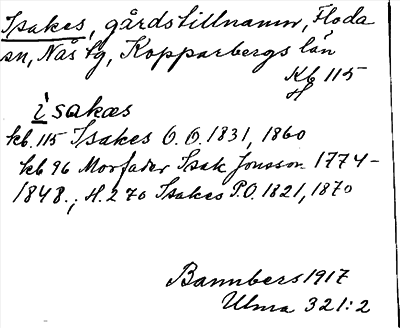 Isakes, gårdstillnamn, Floda
sn, Nås tg, Kopparbergs län
Kb 115
H
ìsakæs
kb. 115 Isakes O. O. 1831, 1860
kb 96 Morfader Isak Jonsson 1774-
1848.; H. 2 70 Isakes P.O. 1821, 1870
Bannbers 1917
Ulma 321:2